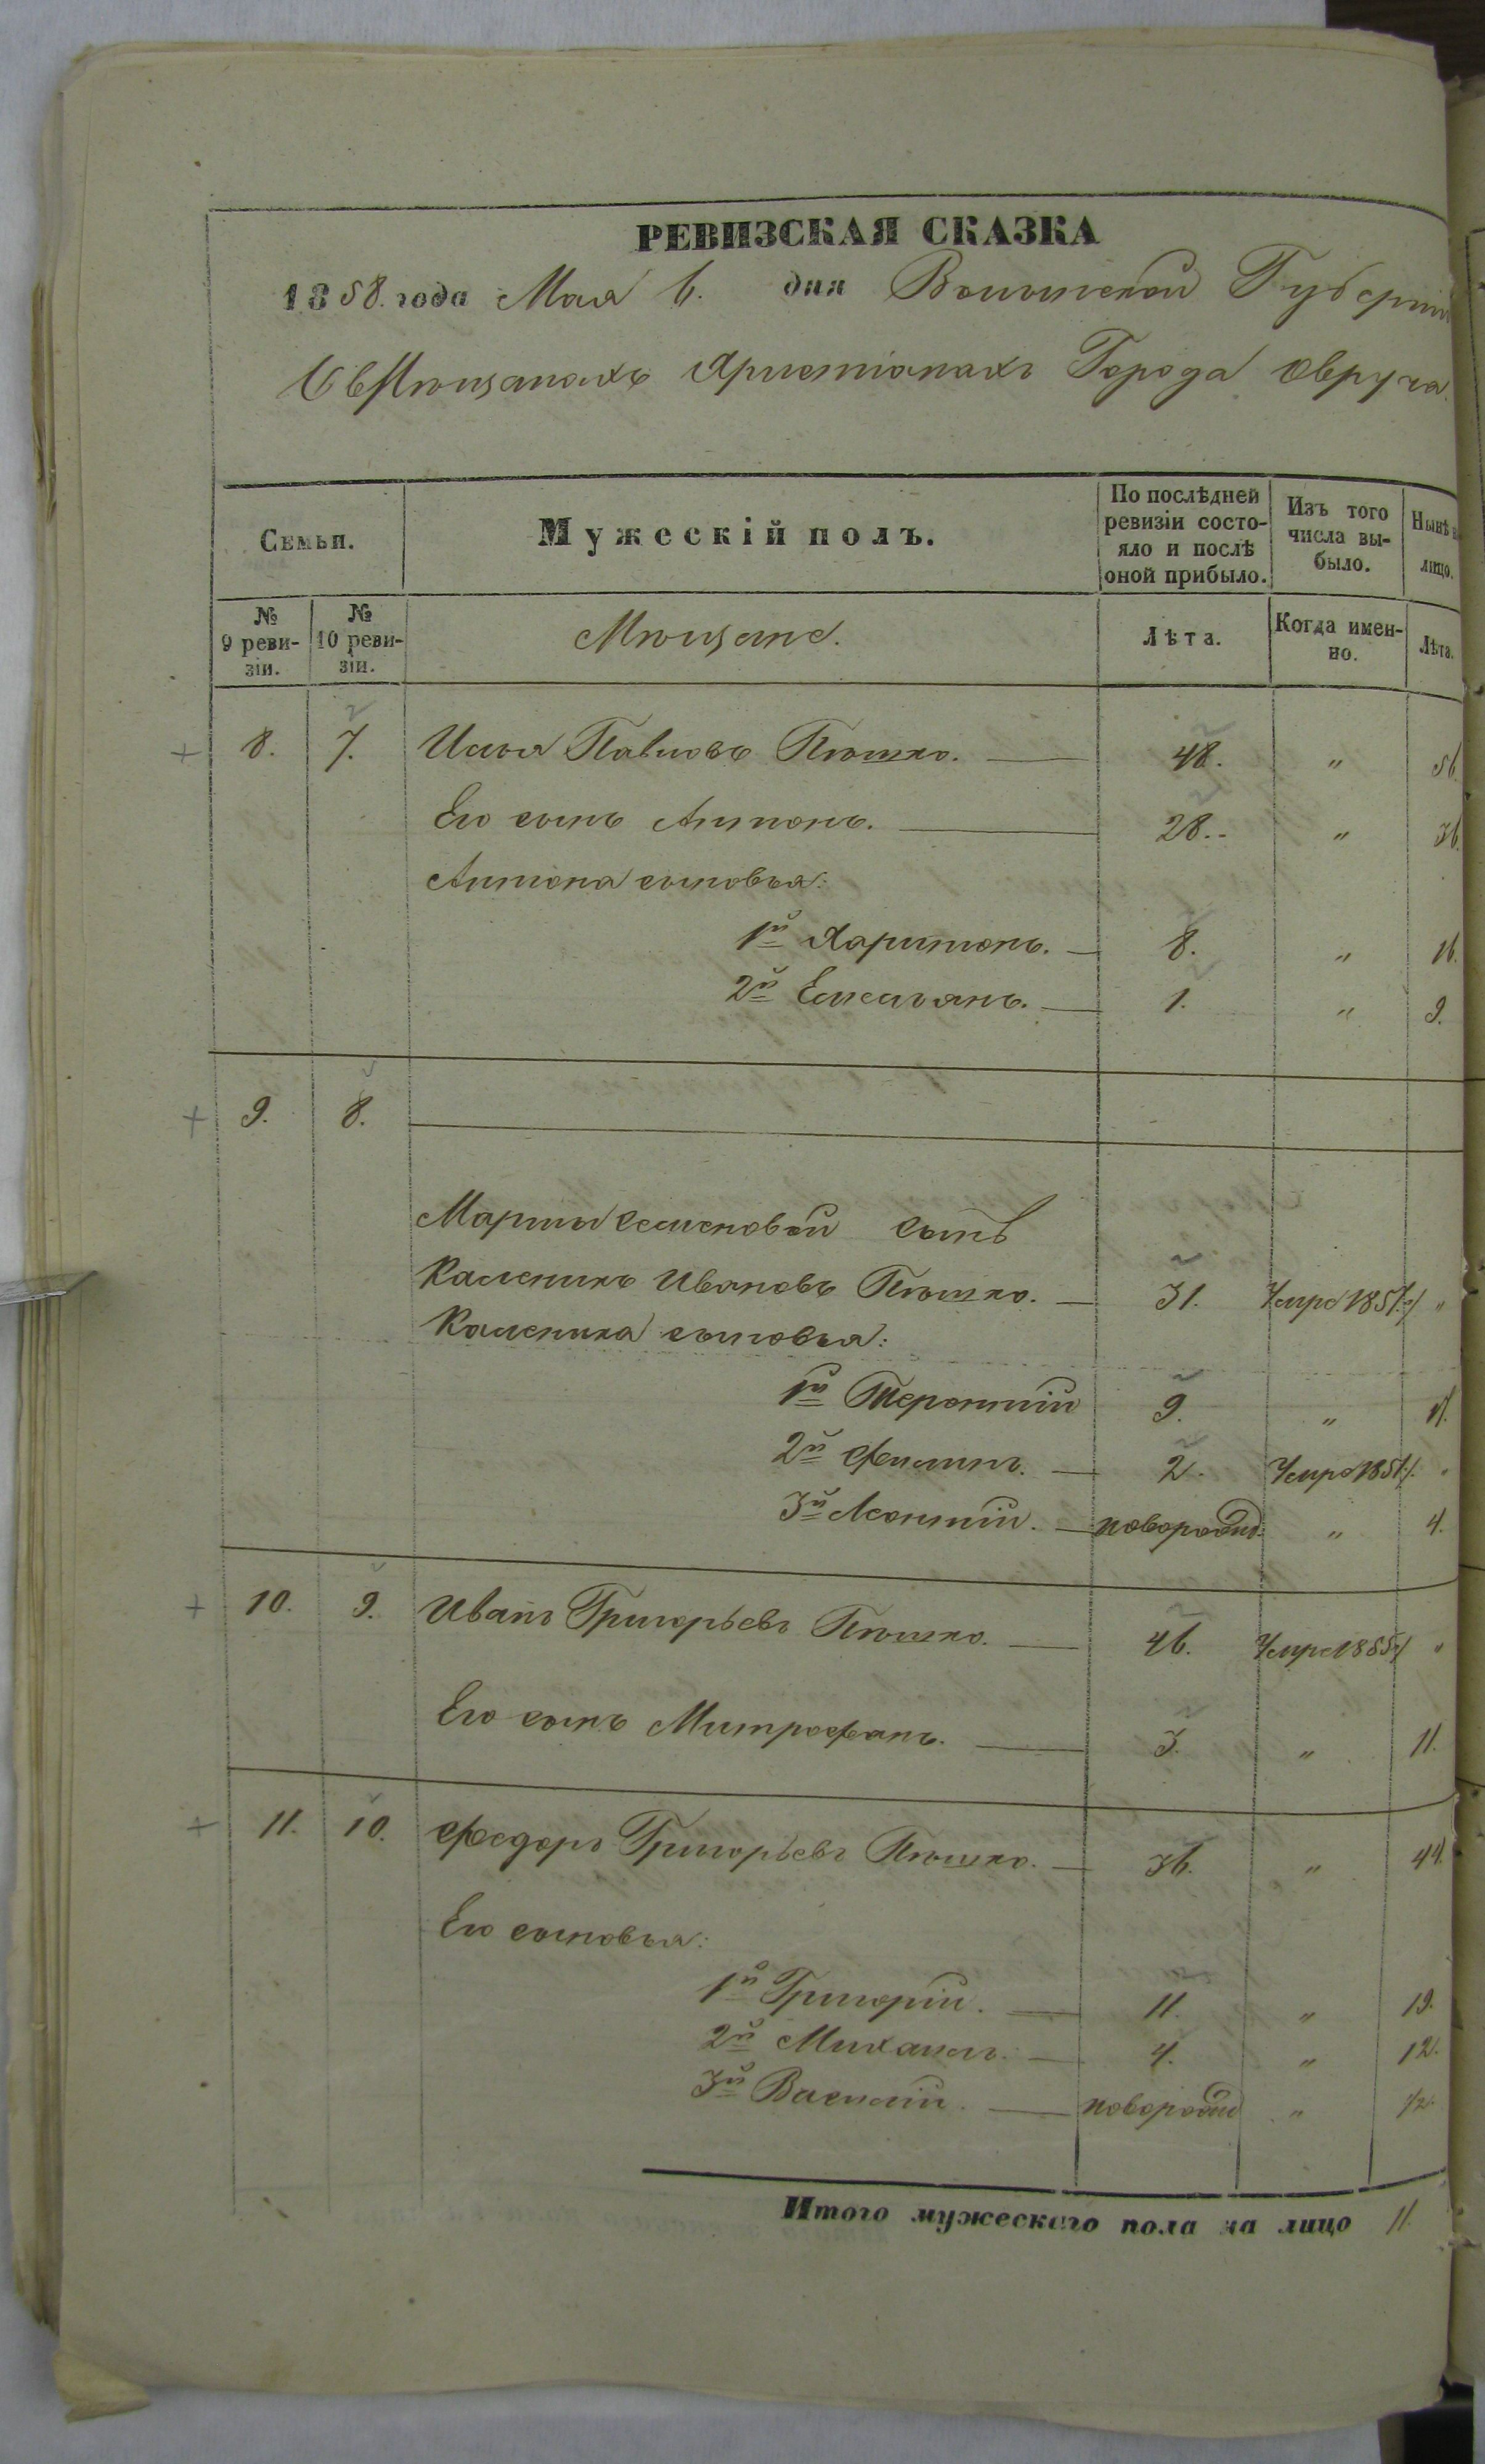 РЕВИЗСКАЯ СКАЗКА
1858. года Мая 6. дня Волынской Губерніи
О Мѣщанахъ Христіанахъ Города Овруча.
Семьи.
Мужескій полъ.
По послѣдней ревизіи состояло и послѣ оной прибыло.
Изъ того числа выбыло.
Нынѣ
лицо.
№ 9 ревизіи.
№ 10 ревизіи.
Мѣщане.
Лѣта.
Когда именно.
Лѣта.
8. 7. Илья Павловъ Пѣшко. 48. " 56.
Его сынъ Антонъ. 28. " 36.
Антона сыновья:
1й Харитонъ. 8. " 16.
2й Емельянъ. 1. " 9.
9. 8.
Марты Семеновой сынъ
Каленикъ Ивановъ Пѣшко. 31. Умре 1851 г. "
Каленика сыновья:
1й Терентій 9. " 17.
2й Филипъ. 2. Умре 1851 г. "
3й Леонтій. новорожд. " 4.
10. 9. Иванъ Григорьевъ Пѣшко. 46. Умре 1855 г. "
Его сынъ Митрофанъ. 3. " 11.
11. 10. Федоръ Григорьевъ Пѣшко. 36. " 44.
Его сыновья:
1й Григорій. 11. " 19.
2й Михаилъ. 4. " 12.
3й Василій. новорожд. " 1/2.
Итого мужескаго пола на лицо 11.